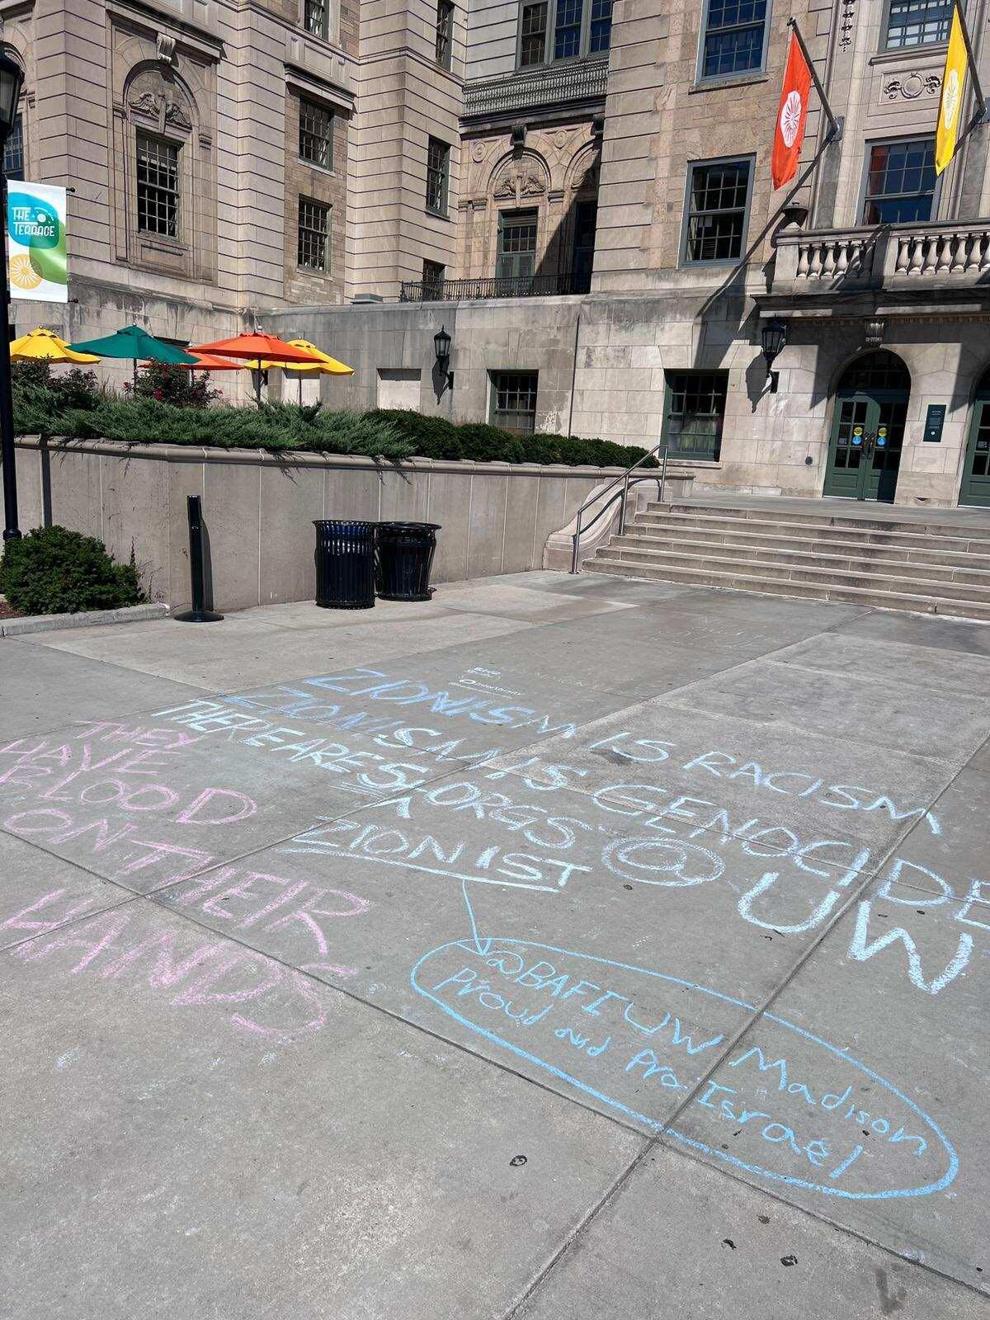 THE
TERRACE
ZIONISM IS RACISM
ZIONISM IS GENOCIDE
THERE ARE 5 ORGS @ UW
^
ZIONIST
THEY
HAVE
BLOOD
ON THEIR
HANDS
@BAFIUW Madison
Proud and Pro Israel